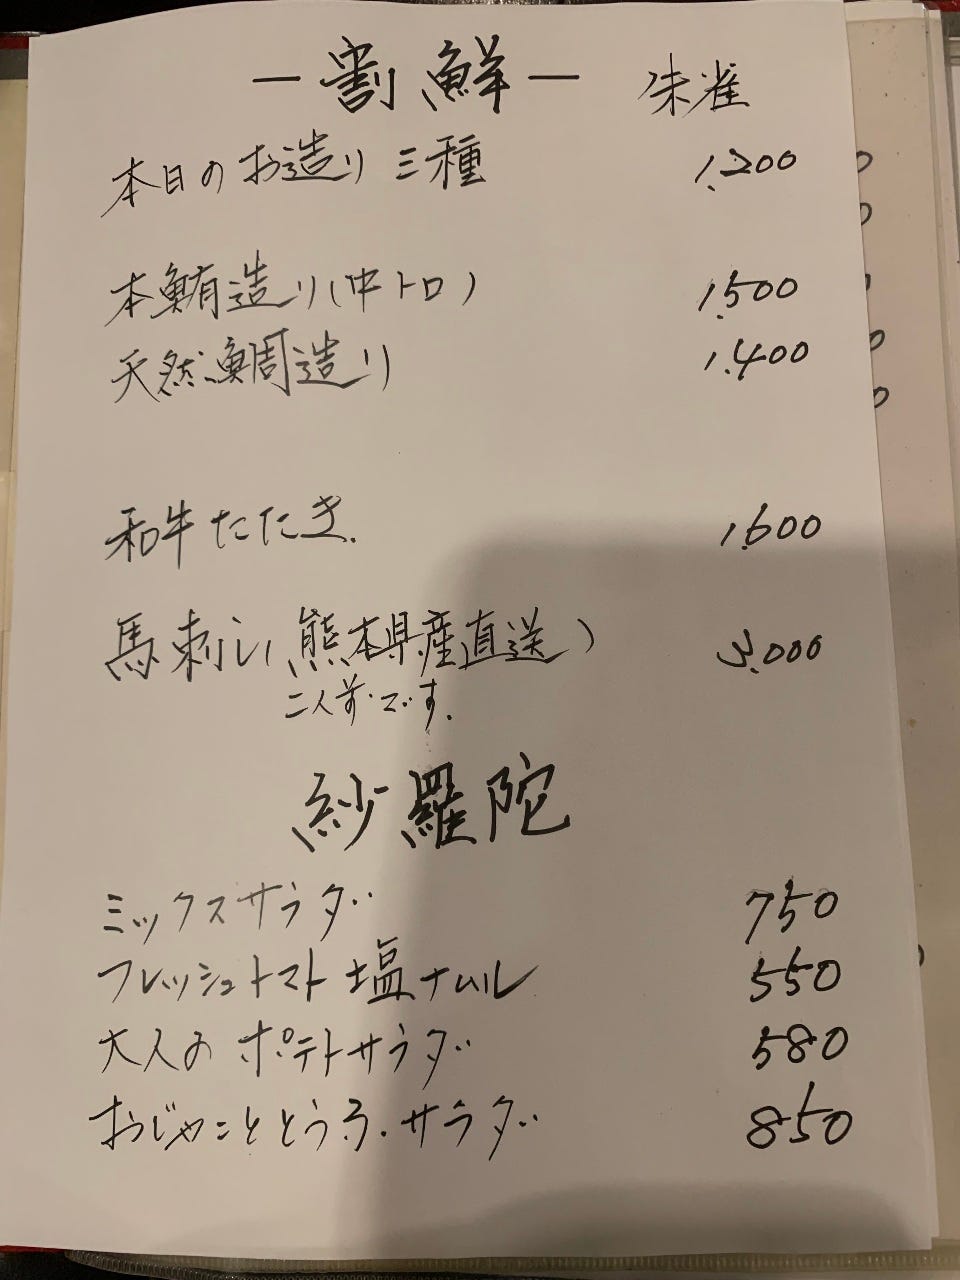 －割鮮－ 朱雀
本日のお造り 三種 1.200
本鮪造り(中トロ) 1.500
天然鯛造り 1.400
和牛たたき. 1.600
馬刺し(熊本県産直送) 3.000
二人前です.
紗羅陀
ミックスサラダ 750
フレッシュトマト 塩ナムル 550
大人の ポテトサラダ 580
おじゃこととうふ.サラダ 850